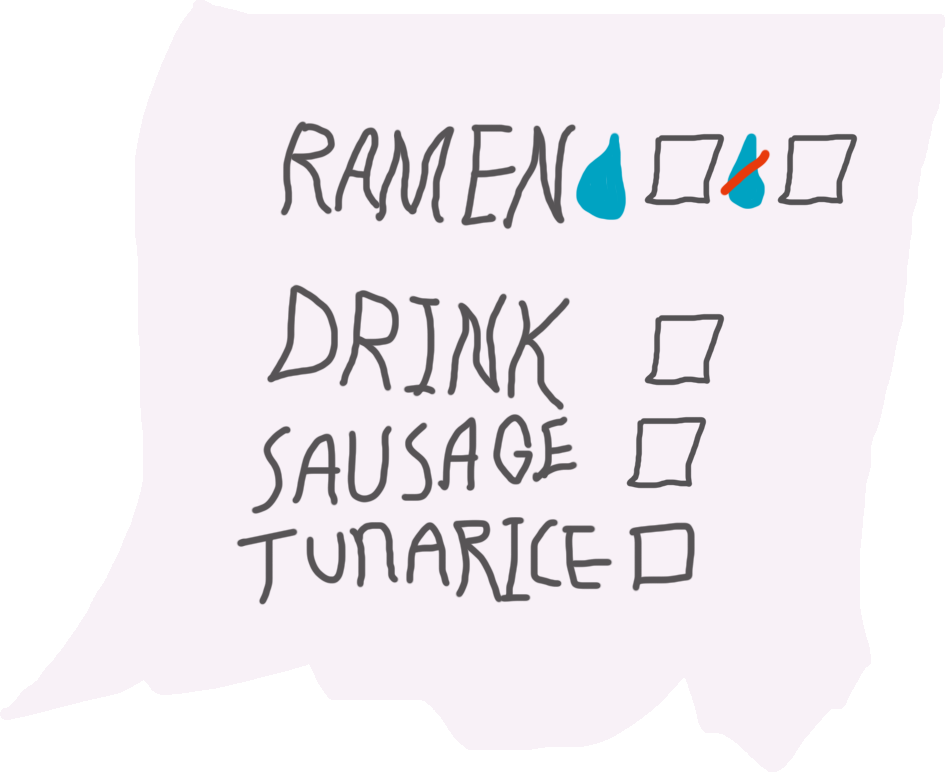 RAMEN
DRINK
SAUSAGE
TUNARICE